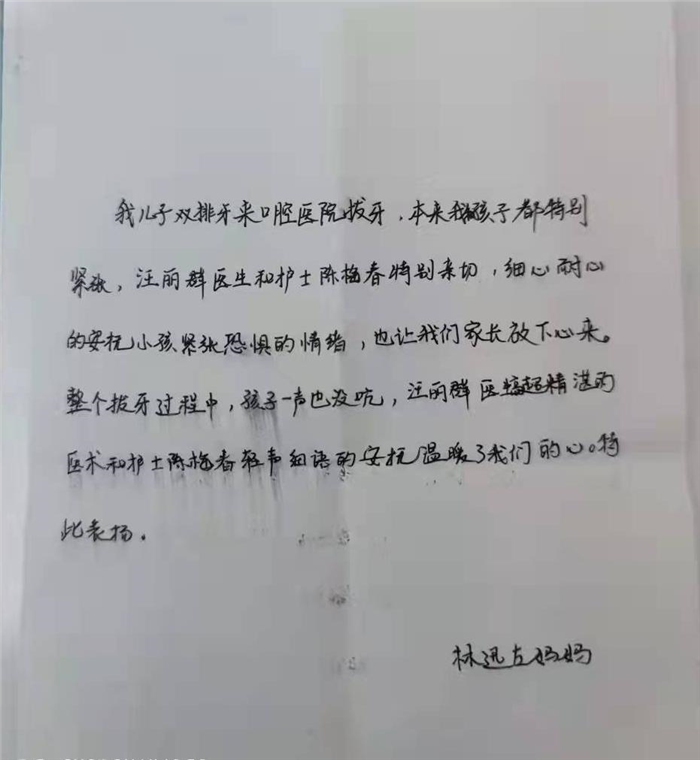 我儿子双排牙来口腔医院拔牙，本来我和孩子都特别
紧张，汪丽群医生和护士陈梅春特别亲切，细心耐心
的安抚小孩紧张恐惧的情绪，也让我们家长放下心来。
整个拔牙过程中，孩子一声也没吭，汪丽群医精湛的
医术和护士陈梅春轻声细语的安抚温暖了我们的心。特
此表扬。
林迅左妈妈